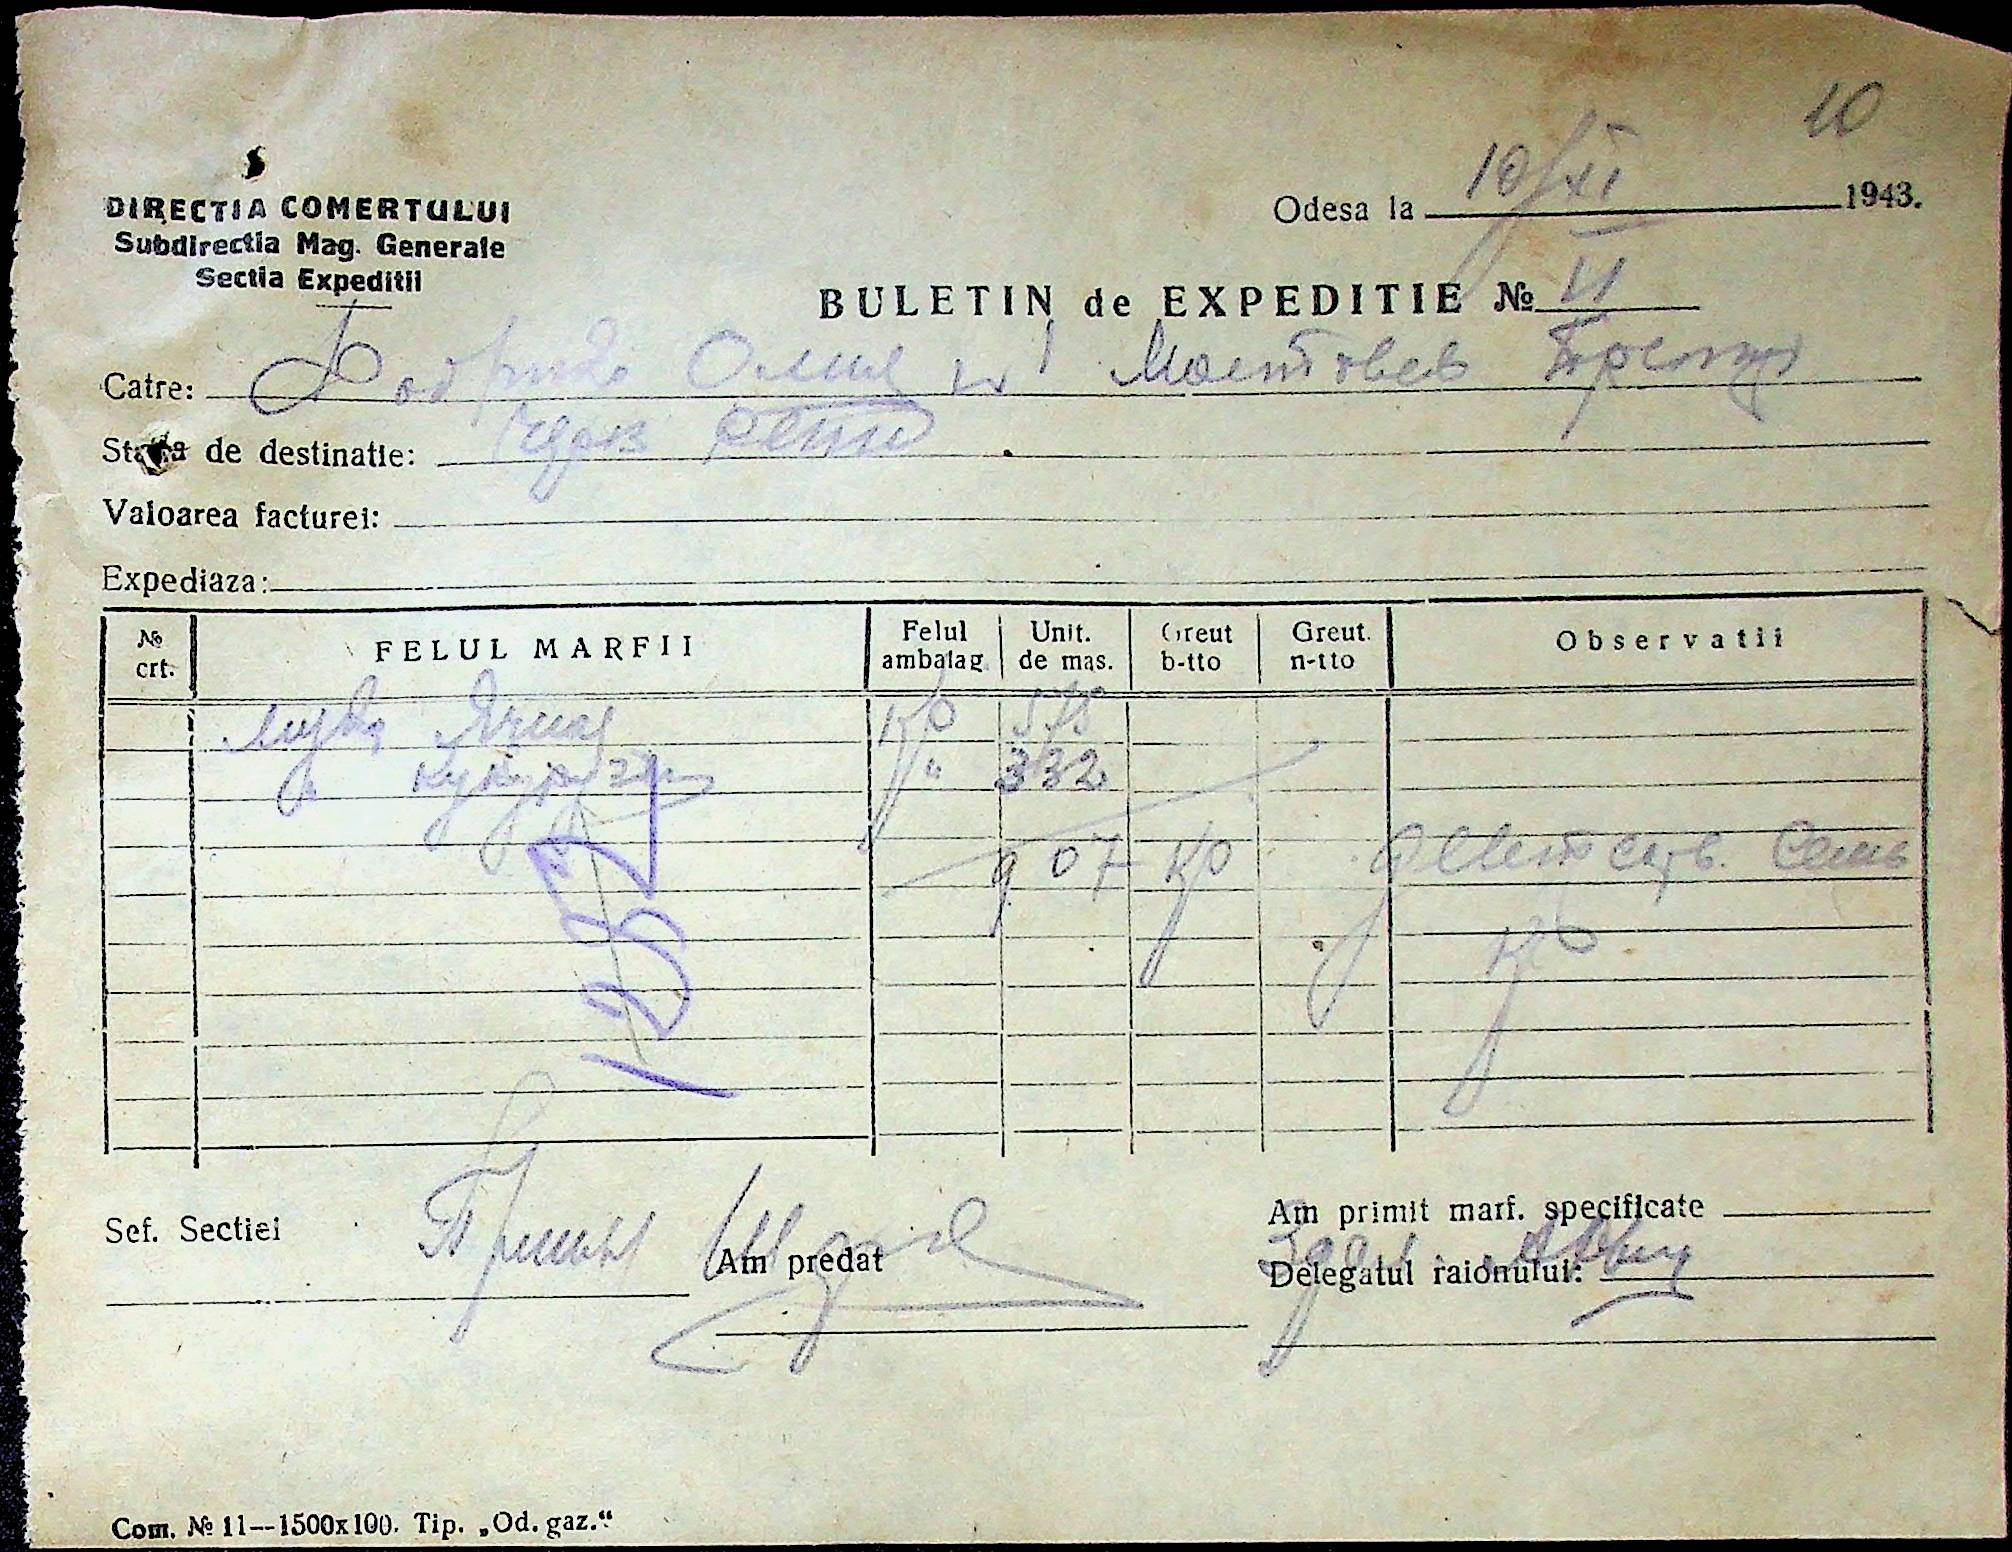 10
DIRECTIA COMERTULUI
Subdirectia Mag. Generale
Sectia Expeditii
Odesa la 10/XI 1943.
BULETIN de EXPEDITIE № VI
Catre:
Statia de destinatie:
Valoarea facturei:
Expediaza:
№ crt. FELUL MARFII Felul ambalag. Unit. de mas. Greut b-tto Greut. n-tto Observatii
Мука Ячная кг 575
" кукурузн " 332
907 кг Девятсотъ Семь
кг
1332
Sef. Sectiei
Принял
Am predat
Am primit marf. specificate
Сдал
Delegatul raionului:
Com. № 11—1500x100. Tip. „Od. gaz.“